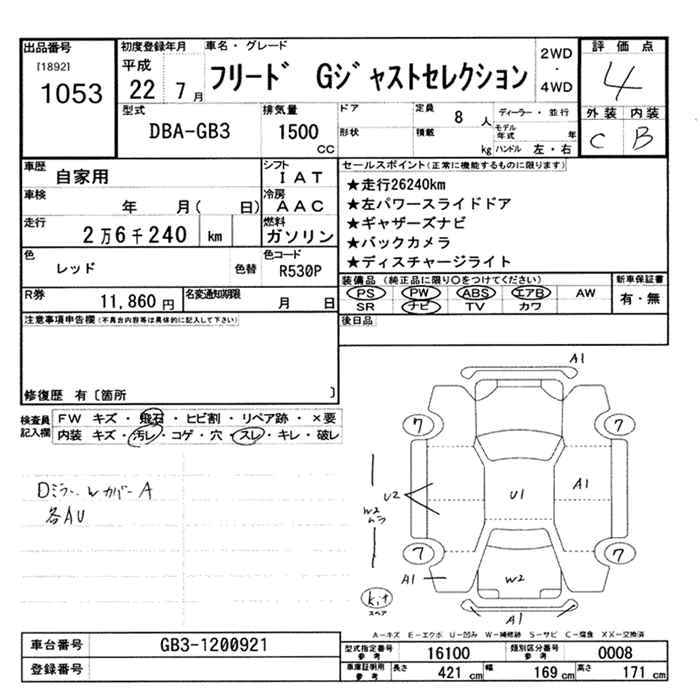 出品番号
[1892]
1053
初度登録年月
平成
22 7月
車名・グレード
フリード Gジャストセレクション
2WD
・
4WD
評価点
4
外装 内装
C B
型式
DBA-GB3
排気量
1500
cc
ドア
形状
定員 8 人
積載 kg
ディーラー・並行
モデル年式 年
ハンドル 左・右
車歴
自家用
シフト
IAT
車検
年 月( 日)
冷房
AAC
走行
2万6千240 km
燃料
ガソリン
色
レッド
色替
色コード
R530P
R券
11,860円
名変通知期限
月 日
セールスポイント(正常に機能するものに限ります)
★走行26240km
★左パワースライドドア
★ギャザーズナビ
★バックカメラ
★ディスチャージライト
装備品(純正品に限り〇をつけてください)
PS PW ABS エアB AW
SR ナビ TV カワ
新車保証書
有・無
後日品
注意事項申告欄(不具合内容等は具体的に記入して下さい)
修復歴 有〔箇所 〕
検査員
記入欄
FW キズ・飛石・ヒビ割・リペア跡・×要
内装 キズ・汚レ・コゲ・穴・スレ・キレ・破レ
DミラーLカバーA
各AU
A1
7 7
U2 U1 A1
W2
ムラ
7 7
A1 W2
kit
スペア
A1
A―キズ E―エクボ U―凹み W―補修跡 S―サビ C―腐食 XX―交換済
車台番号
GB3-1200921
登録番号
型式指定番号
参考
16100
類別区分番号
参考
0008
車庫証明用
参考
長さ 421 cm 幅 169 cm 高さ 171 cm